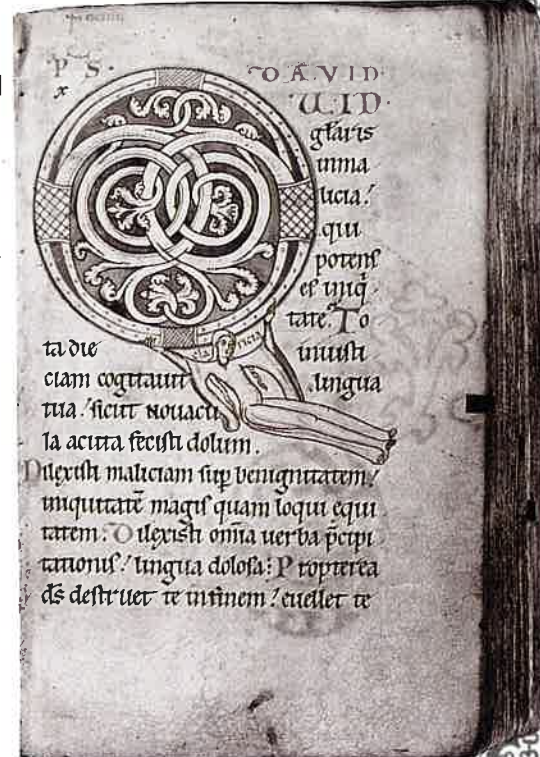 PS.
DAVID
UID
gl̄aris
inma
licia!
qui
potens
es iniq̄
tate. To
ta die
iniusti
Cla ricia
ciam cogitauit
lingua
tua! sicut nouacu
la acuta fecisti dolum.
Dilexisti maliciam sup benignitatem!
iniquitatē magis quam loqui equi
tatem. Dilexisti om̄ia uerba p̄cipi
tationis! lingua dolosa: Propterea
d̄s destruet te infinem! euellet te